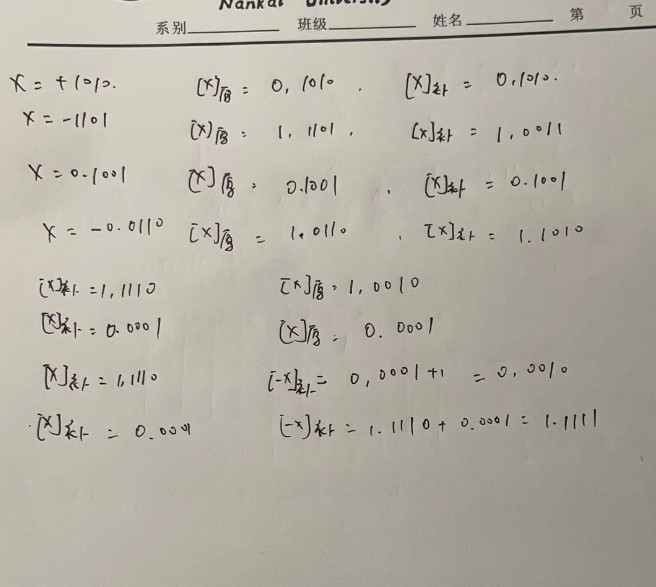 Nankai University
系别 班级 姓名 第 页
X = +1010. [X]原 = 0,1010. [X]补 = 0,1010.
X = -1101 [X]原 = 1,1101, [X]补 = 1,0011
X = 0.1001 [X]原 = 0.1001, [X]补 = 0.1001
X = -0.0110 [X]原 = 1.0110, [X]补 = 1.1010
[X]补 = 1,1110 [X]原 = 1,0010
[X]补 = 0.0001 [X]原 = 0.0001
[X]补 = 1,1110 [-X]补 = 0,0001+1 = 0,0010
[X]补 = 0.0001 [-X]补 = 1.1110 + 0.0001 = 1.1111